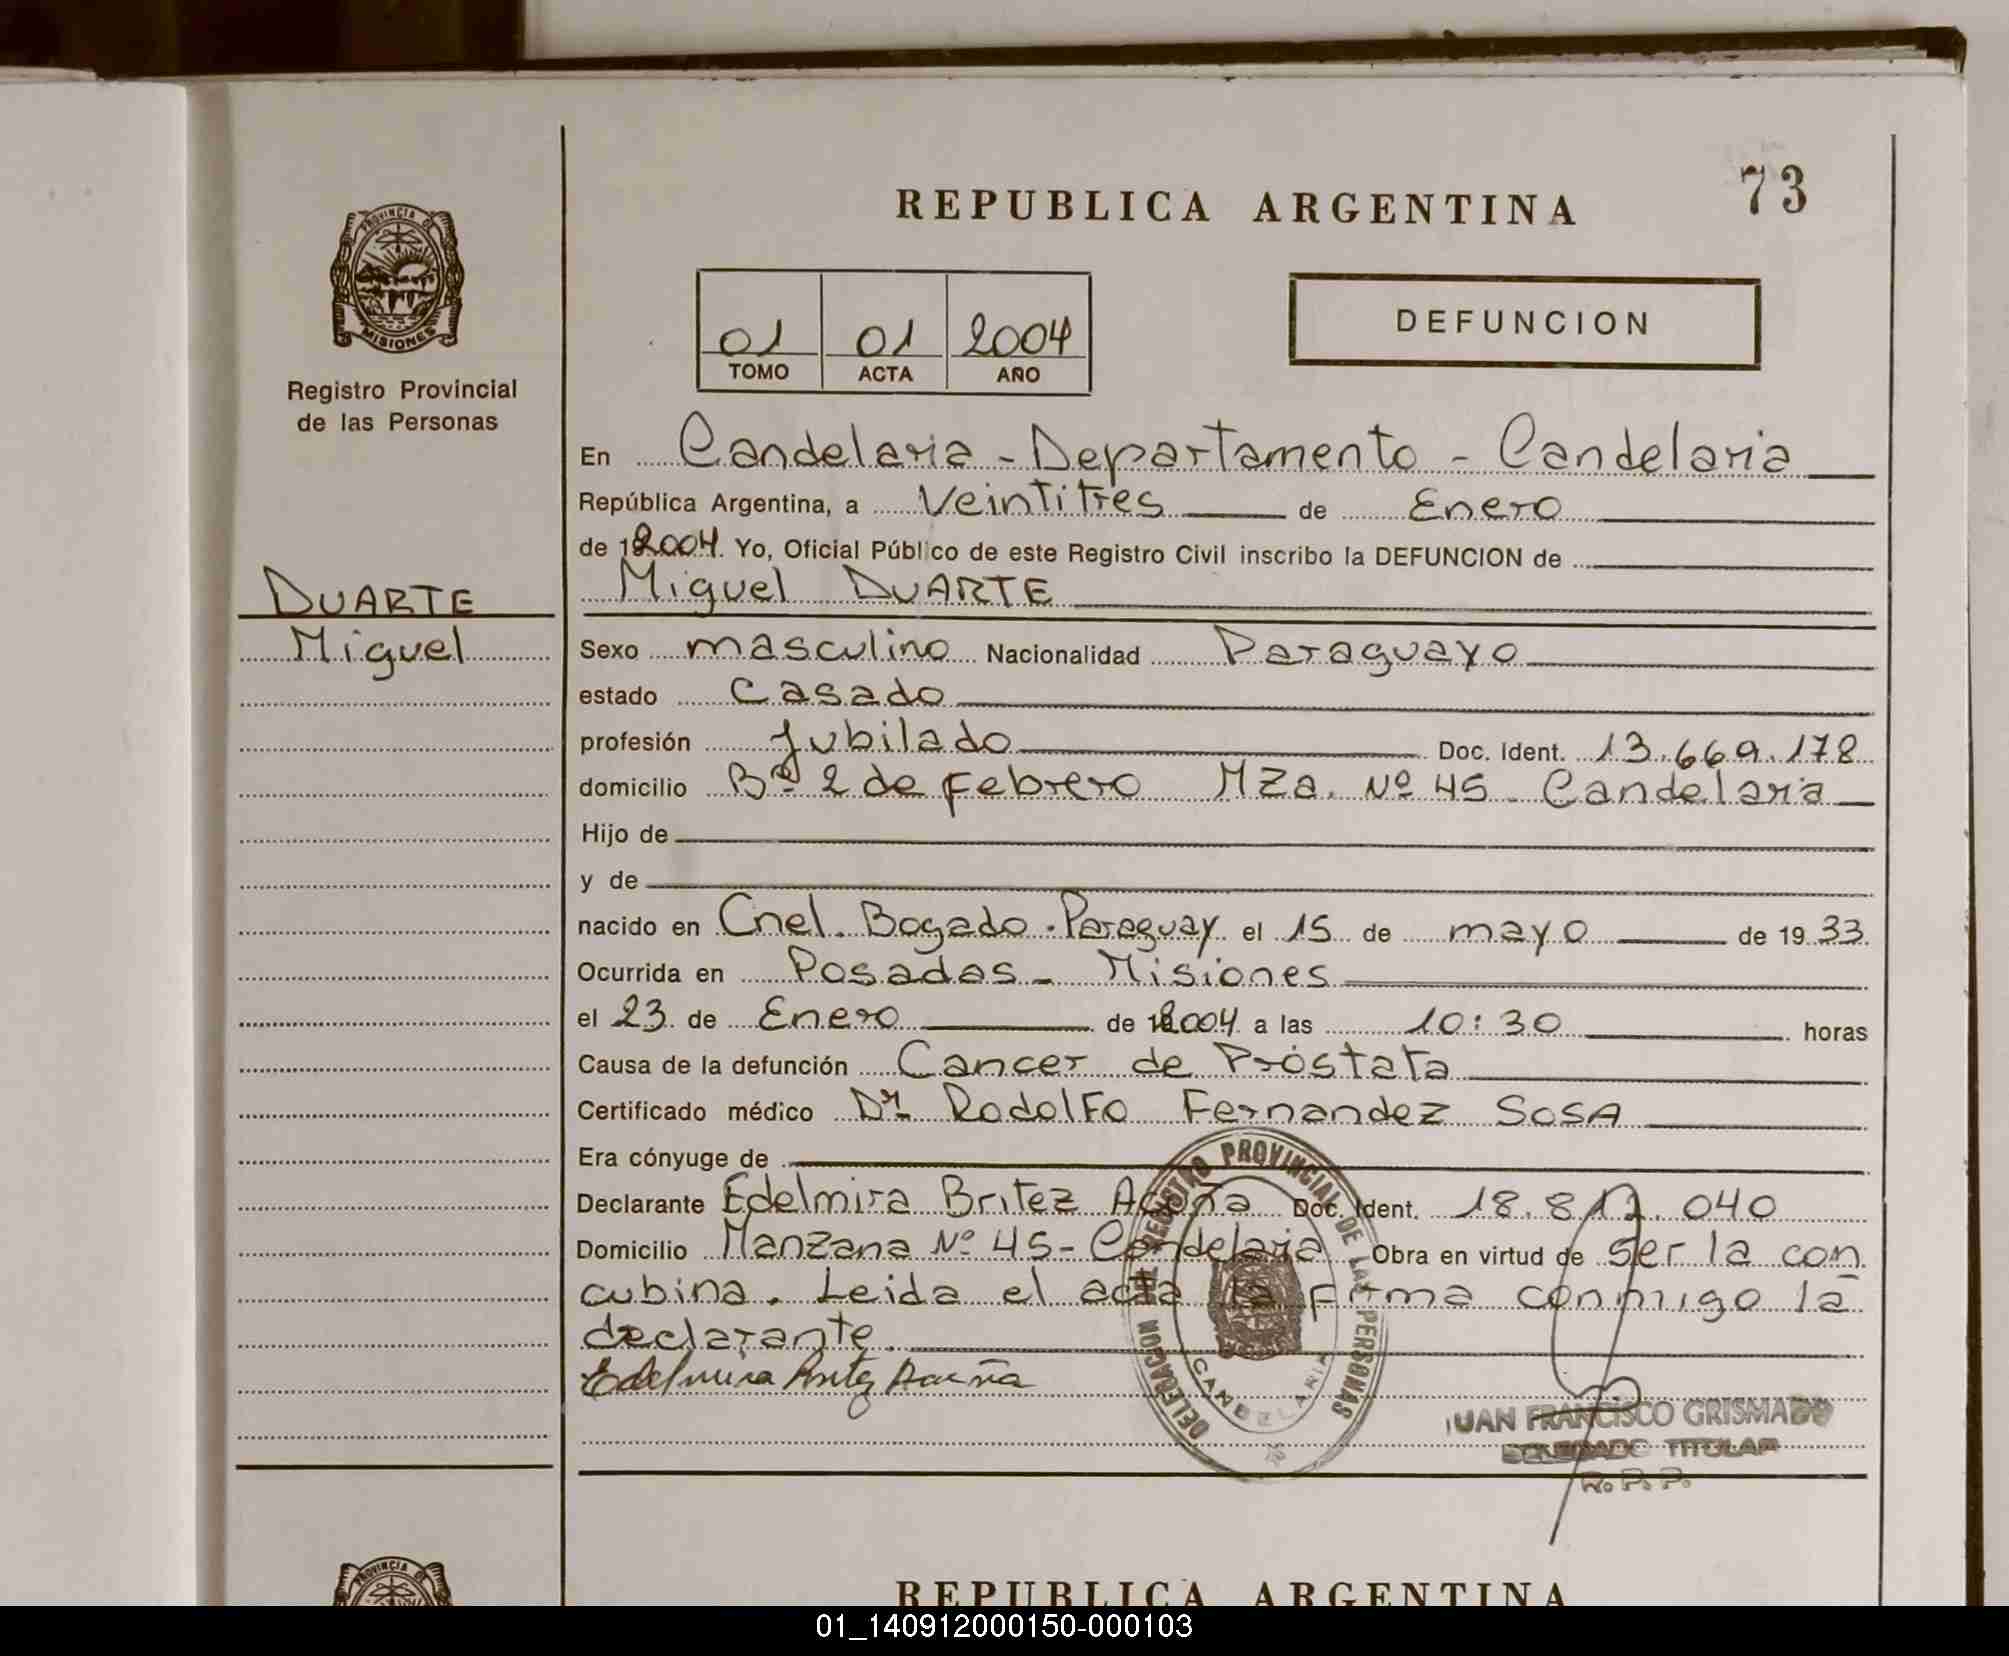 REPUBLICA ARGENTINA
73
PROVINCIA DE
MISIONES
Registro Provincial
de las Personas
01 01 2004
TOMO ACTA AÑO
DEFUNCION
DUARTE
Miguel
En Candelaria - Departamento - Candelaria
República Argentina, a Veintitres de Enero
de 2004. Yo, Oficial Público de este Registro Civil inscribo la DEFUNCION de
Miguel DUARTE
Sexo masculino Nacionalidad Paraguayo
estado Casado
profesión Jubilado Doc. Ident. 13.669.178
domicilio Bº 2 de Febrero MZa. Nº 45 - Candelaria
Hijo de
y de
nacido en Cnel. Bogado - Paraguay el 15 de mayo de 1933
Ocurrida en Posadas - Misiones
el 23 de Enero de 2004 a las 10:30 horas
Causa de la defunción Cancer de Próstata
Certificado médico Dr. Rodolfo Fernandez SOSA
Era cónyuge de
Declarante Edelmira Britez Acuña Doc. Ident. 18.812.040
Domicilio Manzana Nº 45 - Candelaria Obra en virtud de ser la con
cubina. Leida el acta la firma conmigo la
declarante.
Edelmira Britez Acuña
DELEGACION REGISTRO PROVINCIAL DE LAS PERSONAS
CANDELARIA
JUAN FRANCISCO GRISMADO
DELEGADO TITULAR
R. P. P.
PROVINCIA DE
REPUBLICA ARGENTINA
01_140912000150-000103